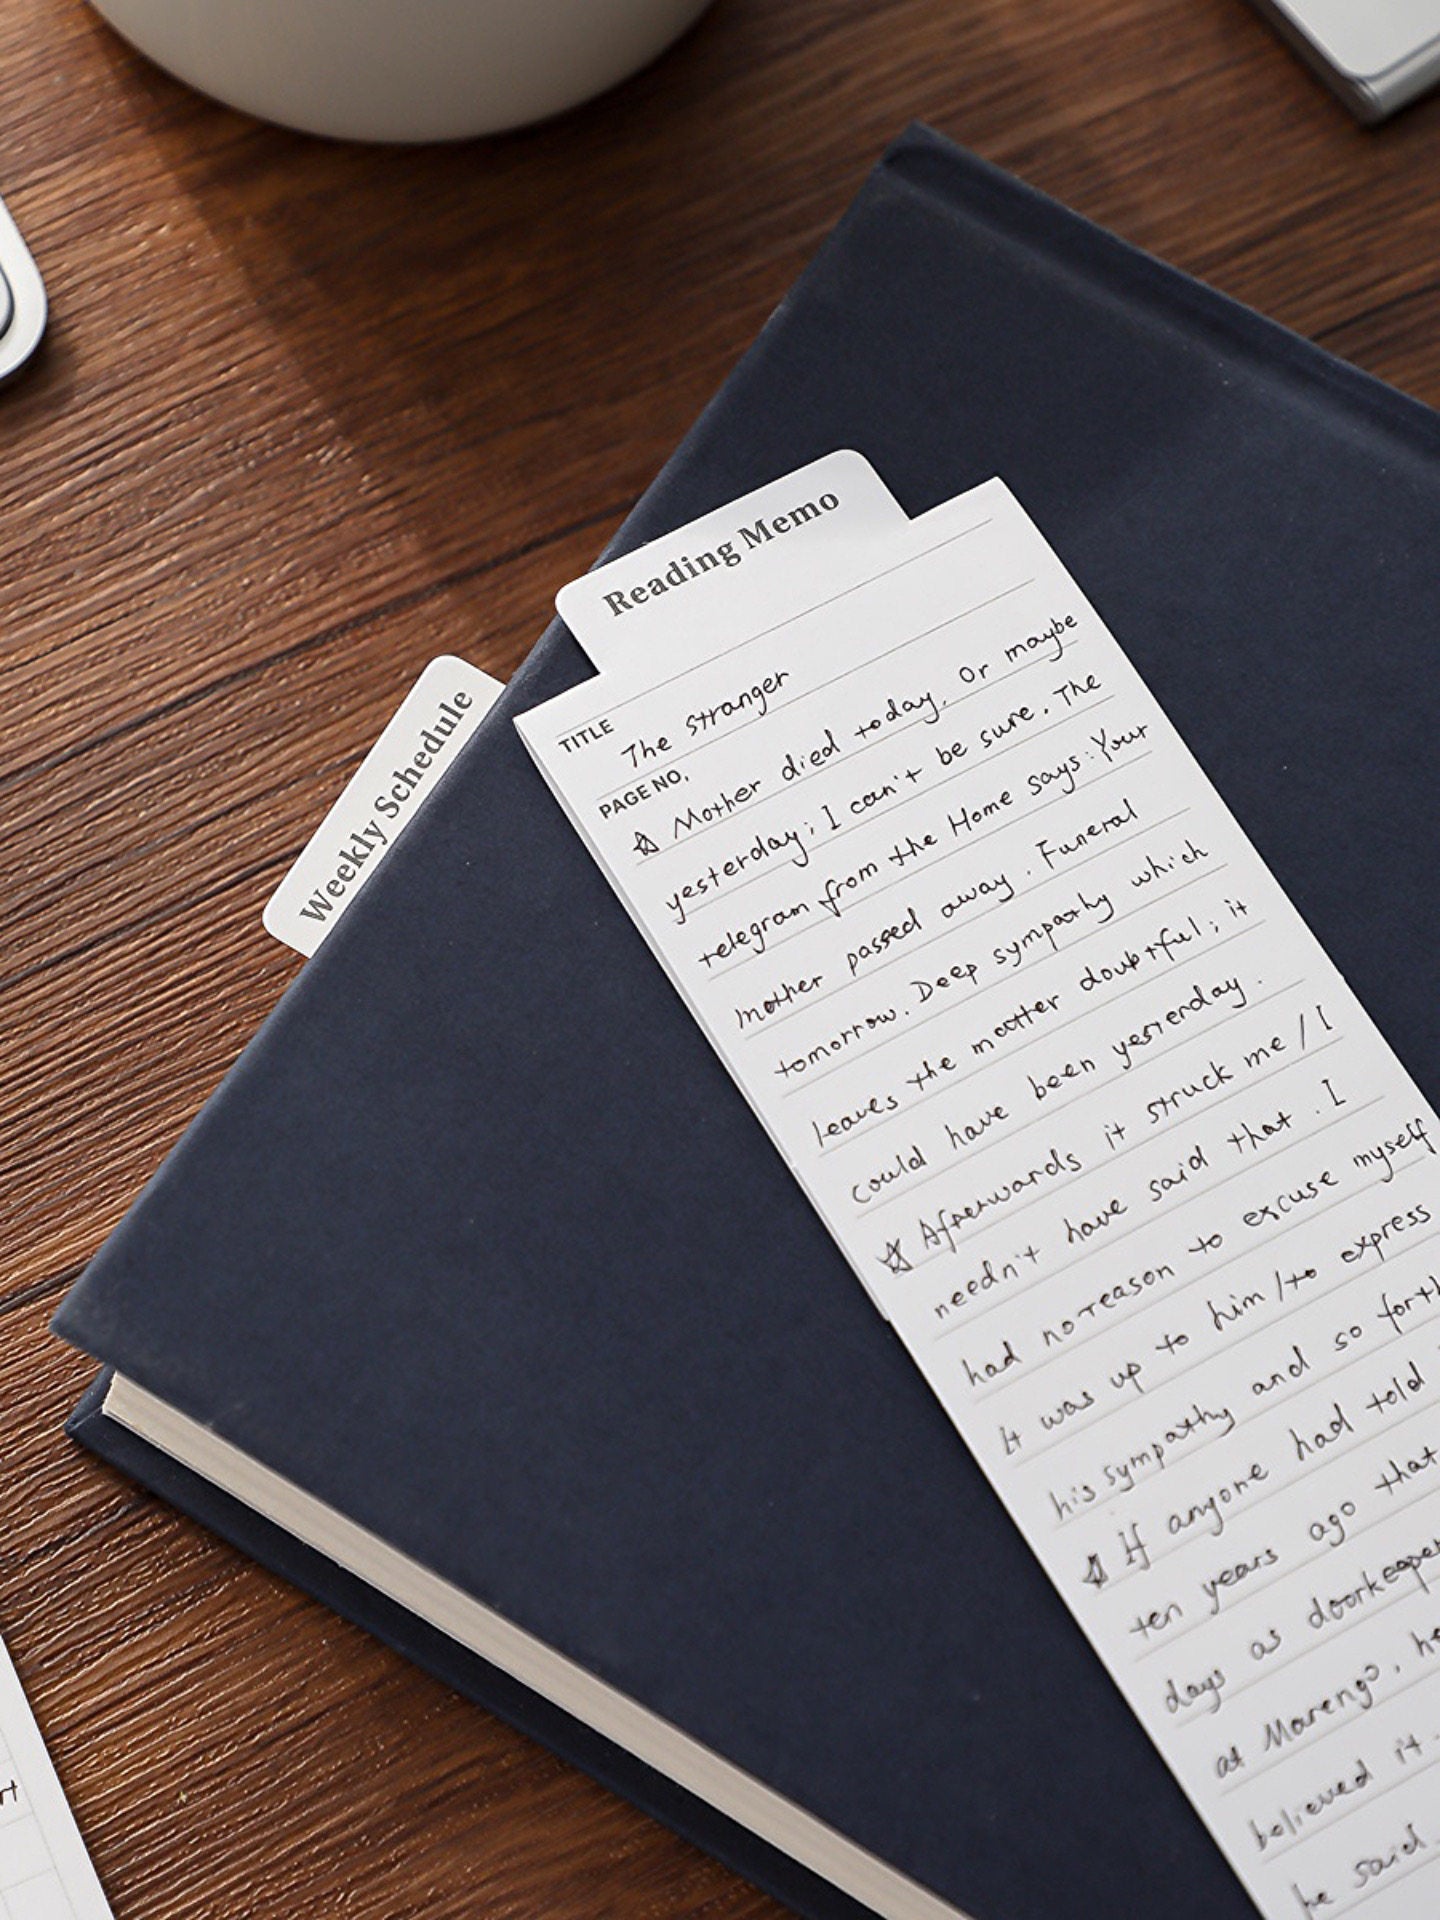 Reading Memo
Weekly Schedule
TITLE
The stranger
PAGE NO.
☆ Mother died today. Or maybe
yesterday; I can't be sure. The
telegram from the Home says: Your
mother passed away. Funeral
tomorrow. Deep sympathy which
leaves the matter doubtful; it
could have been yesterday.
☆ Afterwards it struck me / I
needn't have said that. I
had no reason to excuse myself
It was up to him / to express
his sympathy and so forth
☆ If anyone had told
ten years ago that
days as doorkeeper
at Marengo, he
believed it.
he said.